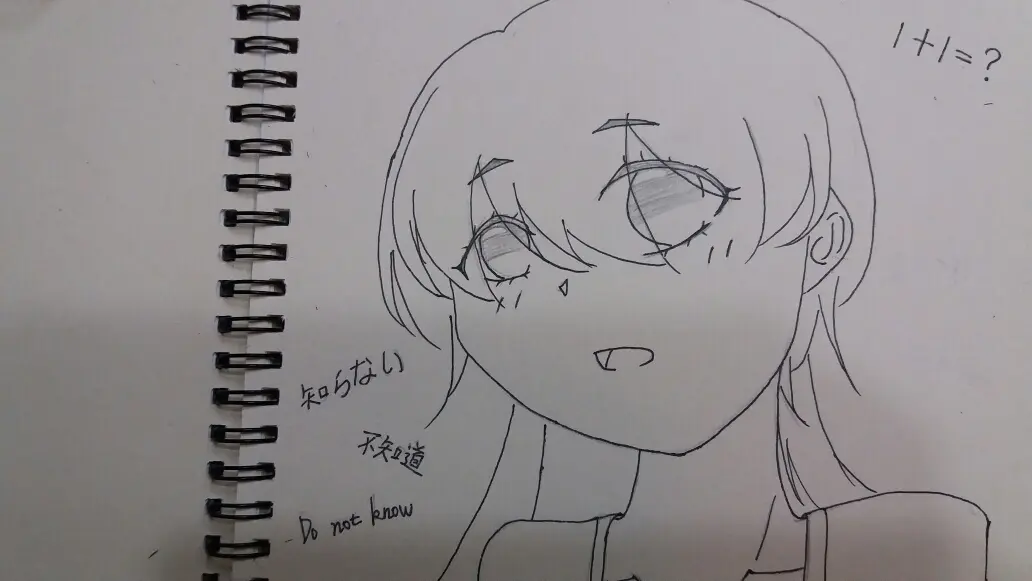 1+1=?
知らない
不知道
Do not know